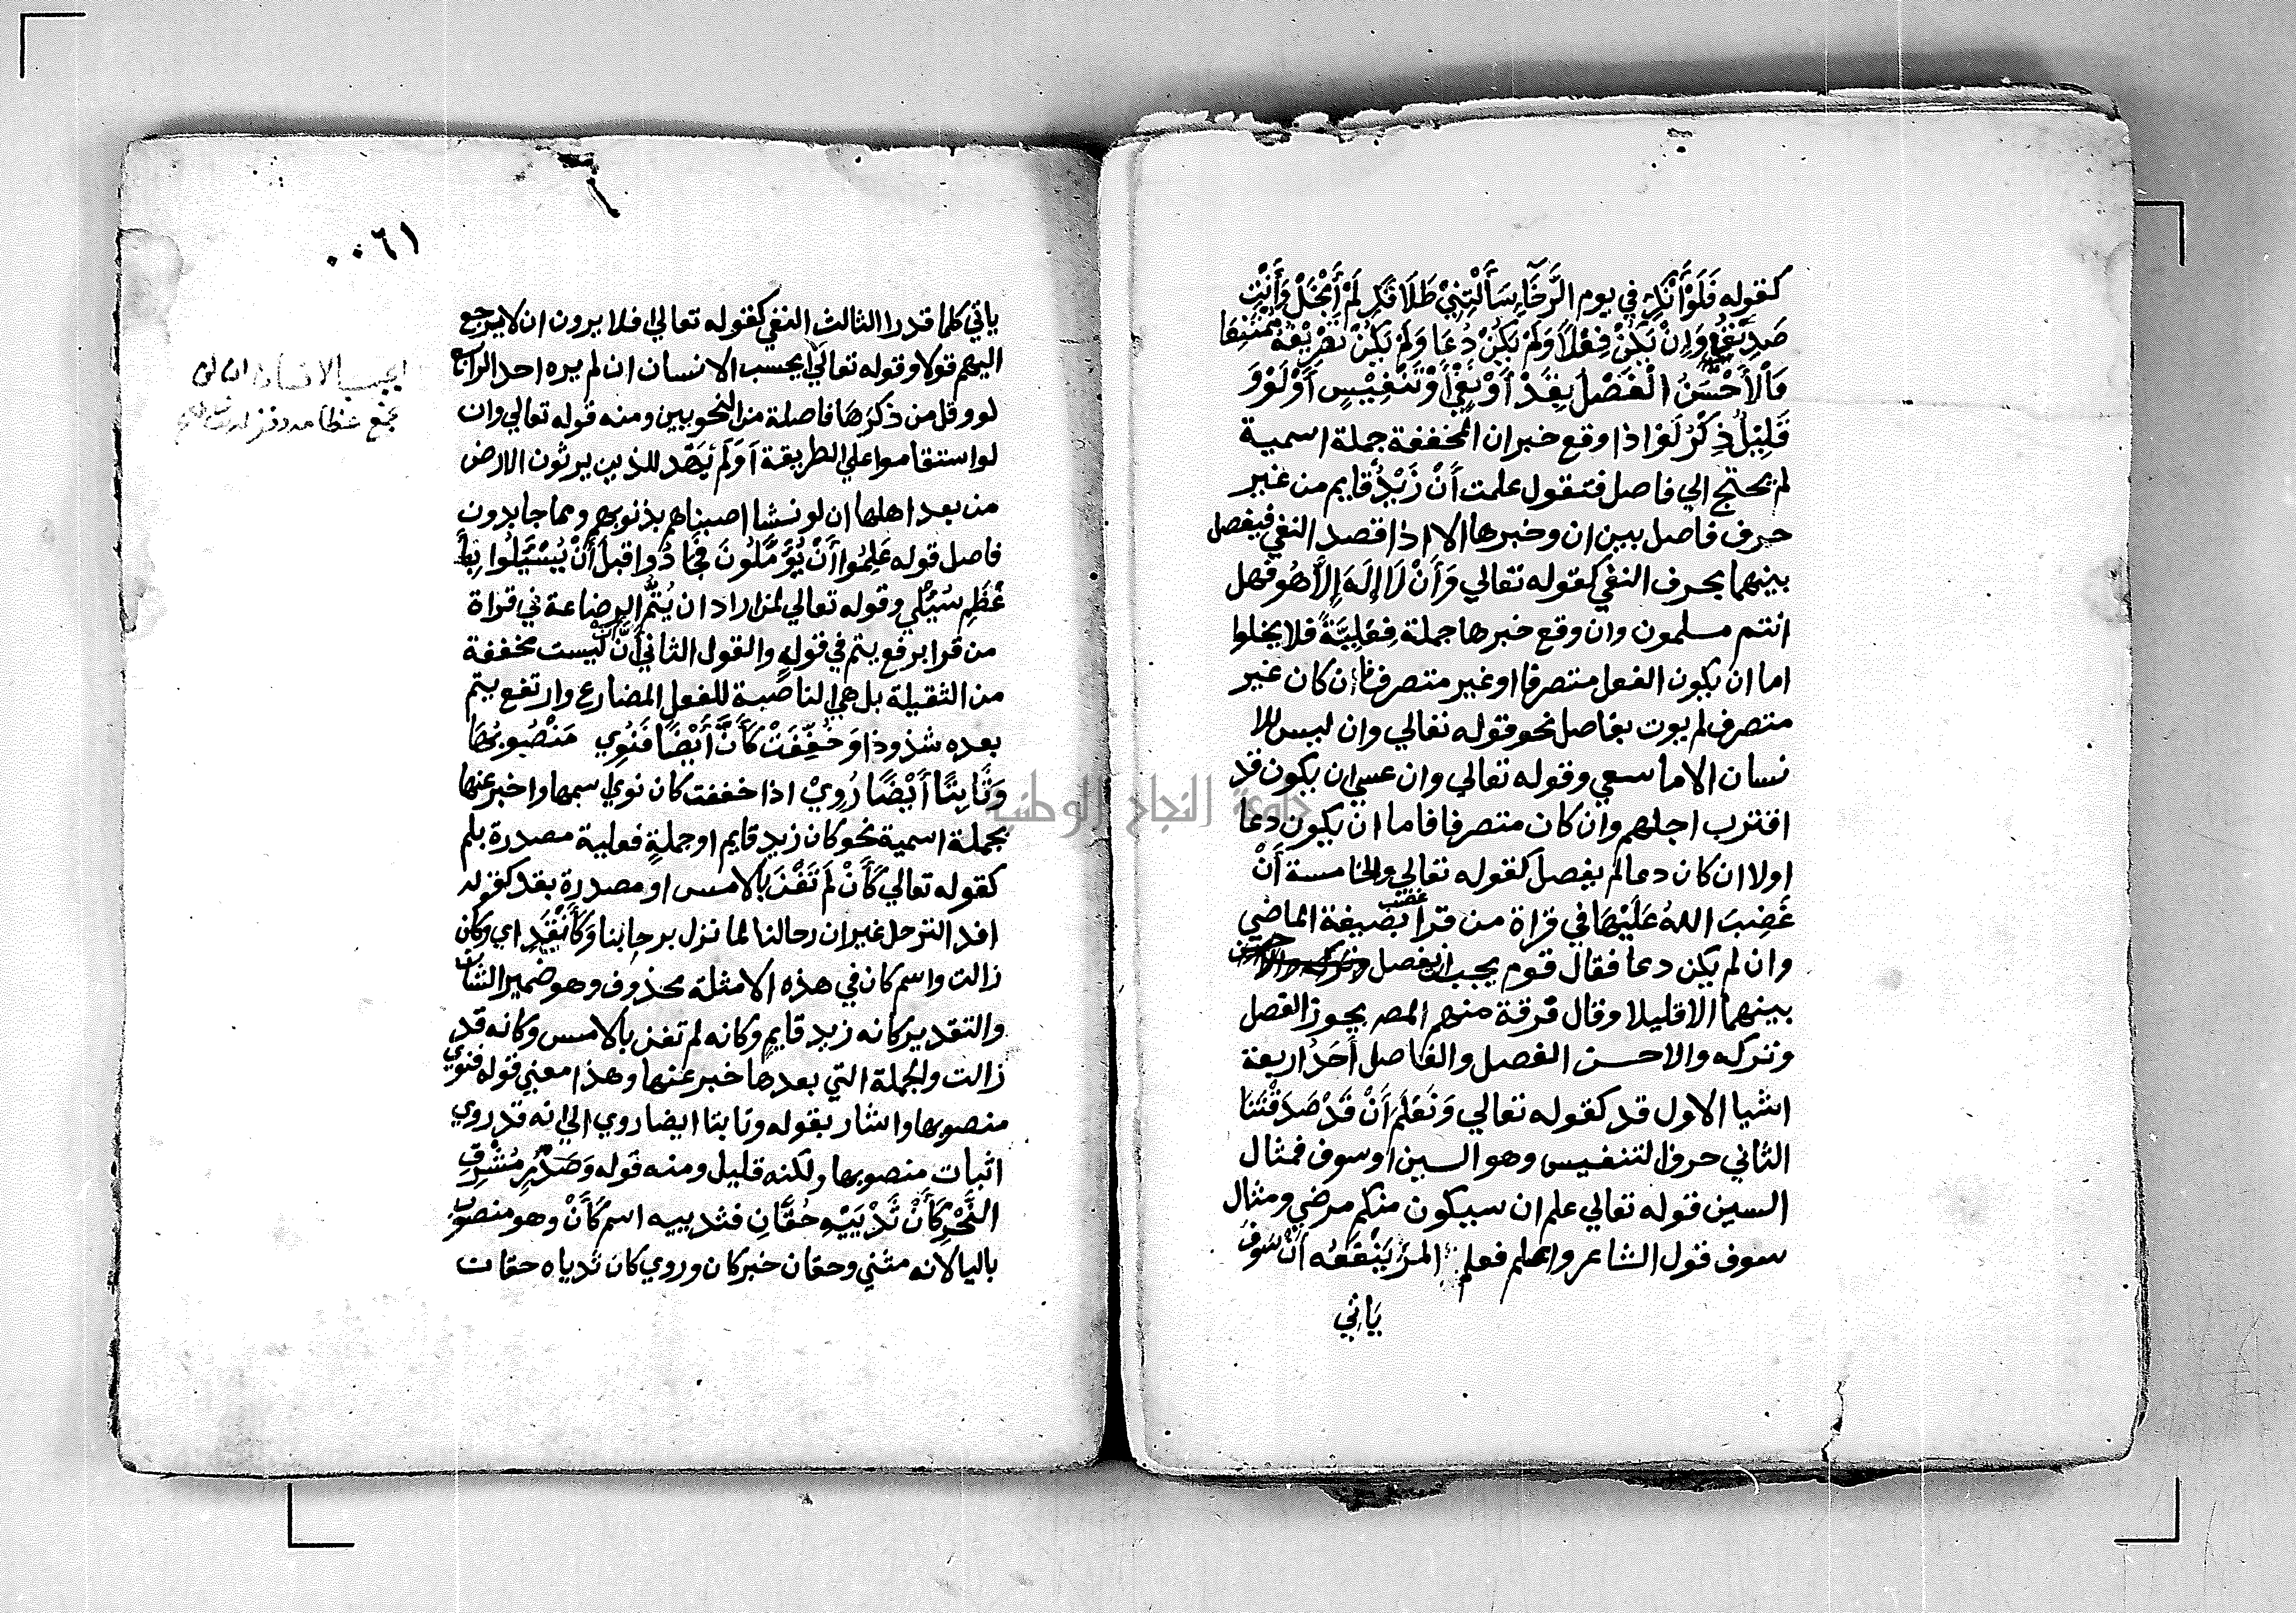 كقوله فَلَوْ أَنْكِ في يوم الرَّخَاءِ سَأَلْتِنِيْ طَلَاقَكِ لَمْ أَبْخَلْ وَأَنْتِ
صَدِيْقُ وَإِنْ يَكُنْ فِعْلًا وَلَمْ يَكُنْ دُعَا وَلَمْ يَكُنْ تَصْرِيْفُهُ مُمْتَنِعَا
فَالأَحْسَنُ الْفَصْلُ بِقَدْ أَوْ نَفْيٍ أَوْ تَنْفِيْسٍ أَوْ لَوْ وَ
قَلِيْلٌ ذِكْرُ لَوْ اذا وقع خبر ان المخففة جملة اسمية
لم يحتج الي فاصل فتقول علمت أَنْ زَيْدٌ قايم من غير
حرف فاصل بين ان وخبرها الا اذا قصد النفي فيفصل
بينهما بحرف النفي كقوله تعالي وَأَنْ لَا إِلَهَ إِلَّا هُو فهل
انتم مسلمون وان وقع خبرها جملة فِعْلِيَّةً فلا يخلوا
اما ان يكون الفعل متصرفا او غير متصرف فان كان غير
متصرف لم يوت بفاصل نحو قوله تعالي وان ليس للا
نسان الا ما سعي وقوله تعالي وان عسي ان يكون قد
اقترب اجلهم وان كان متصرفا فاما ان يكون دعا
اولا ان كان دعا لم يفصل كقوله تعالي والخامسة أَنْ
غَضِبَ اللهُ عَلَيْهَا في قراة من قرا غضب بصيغة الماضي
وان لم يكن دعا فقال قوم يجب ان يفصل
بينهما الا قليلا وقال فرقة منهم المص يجوز الفصل
وتركه والاحسن الفصل والفاصل أَحَدُ اربعة
اشيا الاول قد كقوله تعالي وَنَعْلَمَ أَنْ قَدْ صَدَقْتَنَا
الثاني حرف التنفيس وهو السين او سوف فمثال
السين قوله تعالي علم ان سيكون منكم مرضي ومثال
سوف قول الشاعر واعلم فعلم المرْ يَنْفَعُه أَنْ سَوْفَ
يَاتِي
٠٠٦١
ياتي كلما قدرا الثالث النفي كقوله تعالي افلا يرون ان لا يرجع
اليهم قولا وقوله تعالي أيحسب الانسان ان لم يره احد الرابع
لو وقل من ذكرَهَا فاصلة من النحويين ومنه قوله تعالي وان
لو استقاموا علي الطريقة أَوَلَمْ يَهْدِ للذين يرثون الارض
من بعد اهلها ان لو نشا اصبناهم بذنوبهم ومما جا بدون
فاصل قوله عَلِمُوا أَنْ يُؤَمَّلُونَ فَجَادُوا قبلَ أَنْ يُسْئَلُوا بِأَ
عْظَمِ سُئْلي وقوله تعالي لمن اراد ان يُتمُّ الرضاعة في قراة
من قرا برفع يتم في قولٍ والقول الثاني أَنَّ ان ليست مخففة
من الثقيلة بل هي الناصبة للفعل المضارع وارتفع يتم
بعده شذوذا وَخُفِّفَتْ كَأَنَّ أَيْضًا فَنُوِي مَنْصُوبُهَا
وَثَابِتًا أَيْضًا رُوِيْ اذا خففت كان نوي اسمها واخبر عنها
بجملة اسمية نحو كان زيد قايم او جملةٍ فعلية مصدرة بلم
كقوله تعالي كَأَنْ لَمْ تَغْنَ بالامس او مصدرةٍ بقد كقوله
افد الترحل غير ان رحالنا لما تزل برحابنا وَكَأَنْ قَدِ اي وكان
زالت واسم كان في هذه الامثلة محذوف وهو ضمير الشان
والتقدير كانه زيد قايم وكانه لم تغن بالامس وكانه قد
زالت والجملة التي بعدها خبر عنها وهذا معني قوله فنوي
منصوبها واشار بقوله وثابتا ايضا روي الي انه قد روي
اثبات منصوبها ولكنه قليل ومنه قوله وَصَدْرٍ مُشْرِقِ
النَّحْرِ كَأَنْ ثَدْيَيْهِ حُقَّانِ فثدييه اسم كَأَنْ وهو منصوب
باليا لانه مثني وحقان خبر كان وروي كان ثدياه حقان
ايحسب الانسان ان لن
نجمع عظامه
جامعة النجاح الوطنية